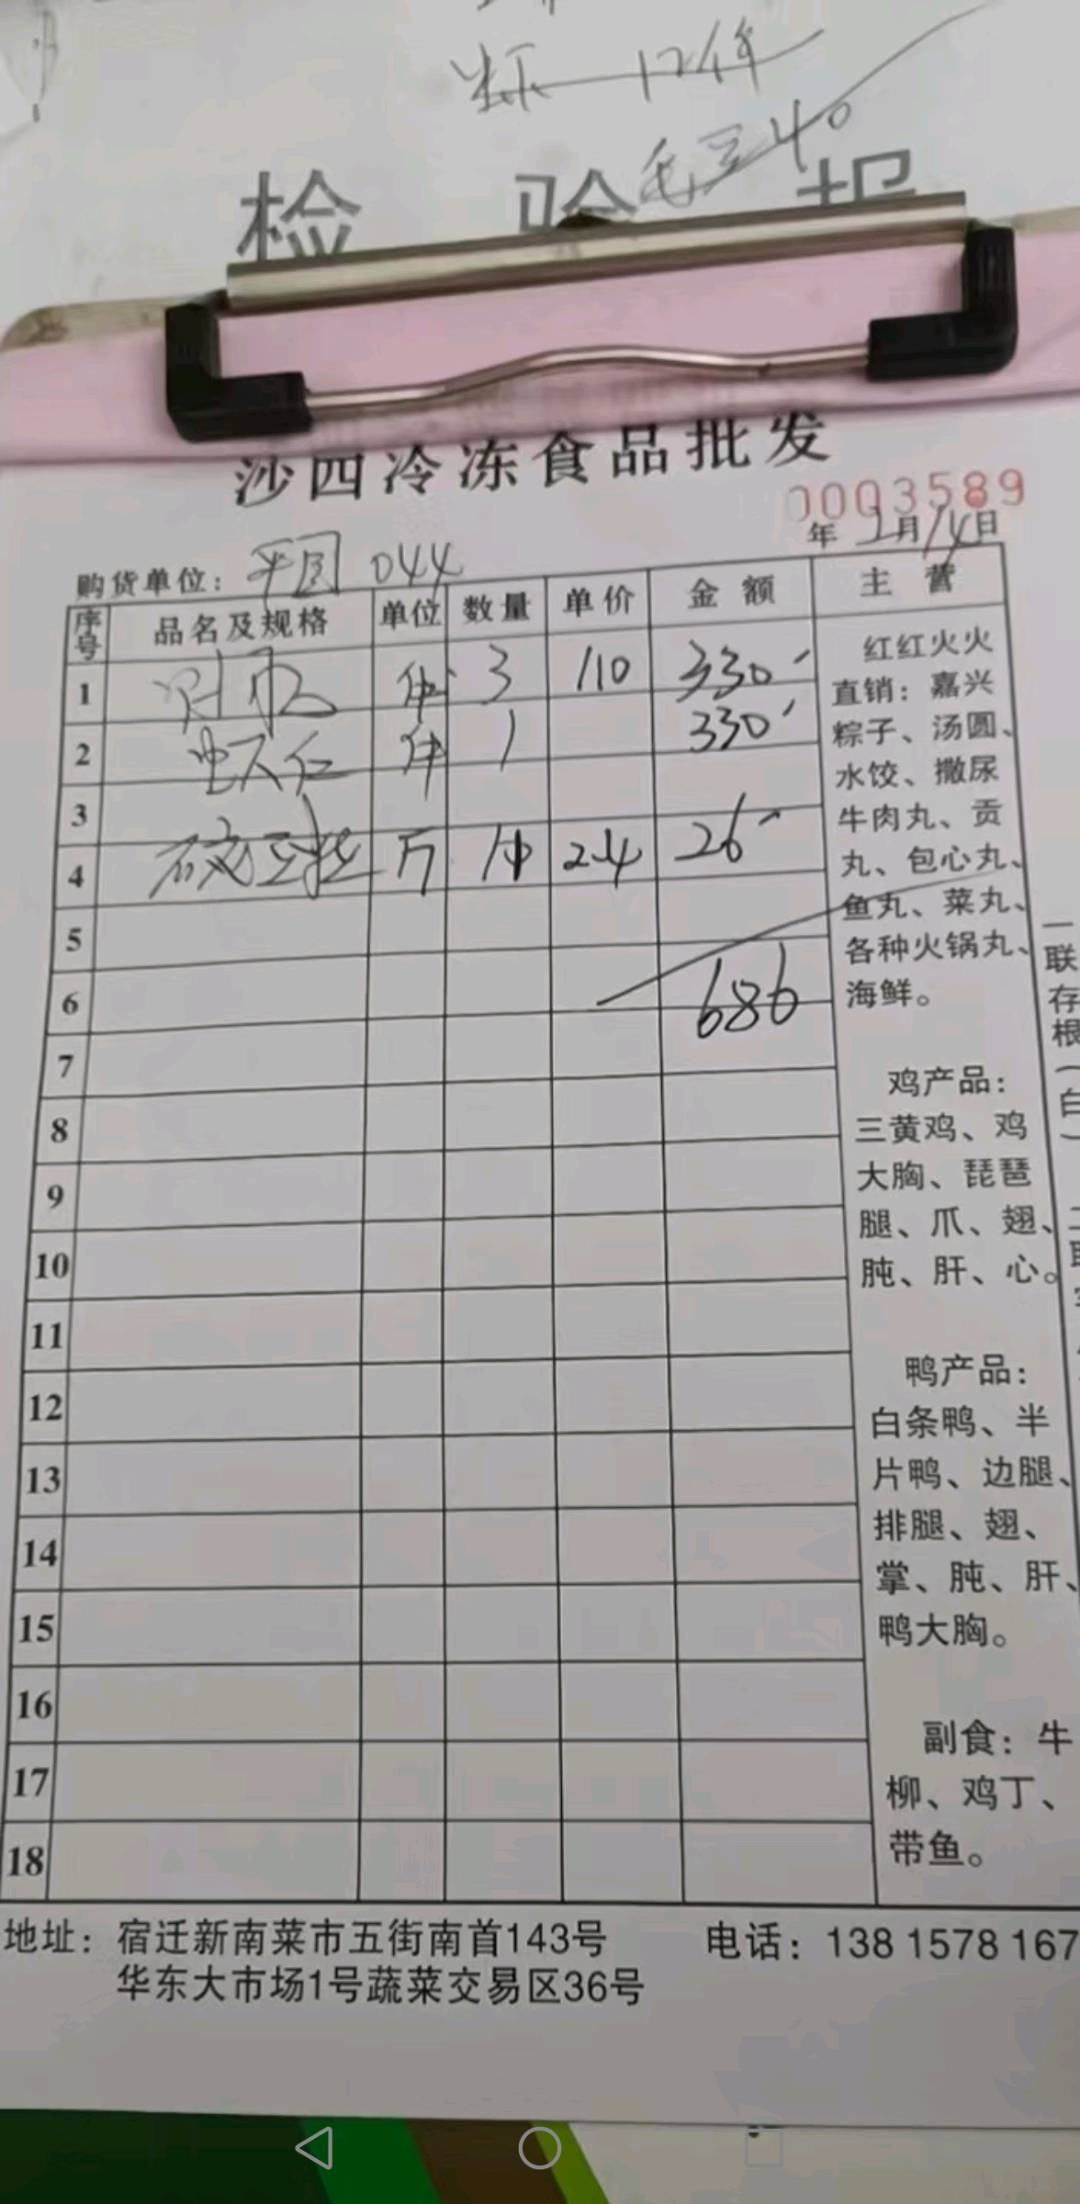 一 12件
毛豆 40
检 验 报
沙四冷冻食品批发
0003589
年 2月14日
购货单位： 平园 044
序号 品名及规格 单位 数量 单价 金额 主营
1 件 3 110 330
2 虾仁 件 1 330
3
4 24 26
5
6 686
7
8
9
10
11
12
13
14
15
16
17
18
红红火火
直销：嘉兴
粽子、汤圆、
水饺、撒尿
牛肉丸、贡
丸、包心丸、
鱼丸、菜丸、
各种火锅丸、
海鲜。
鸡产品：
三黄鸡、鸡
大胸、琵琶
腿、爪、翅、
肫、肝、心。
鸭产品：
白条鸭、半
片鸭、边腿、
排腿、翅、
掌、肫、肝、
鸭大胸。
副食：牛
柳、鸡丁、
带鱼。
一联存根（白）
地址：宿迁新南菜市五街南首143号 电话：138 1578 167
华东大市场1号蔬菜交易区36号